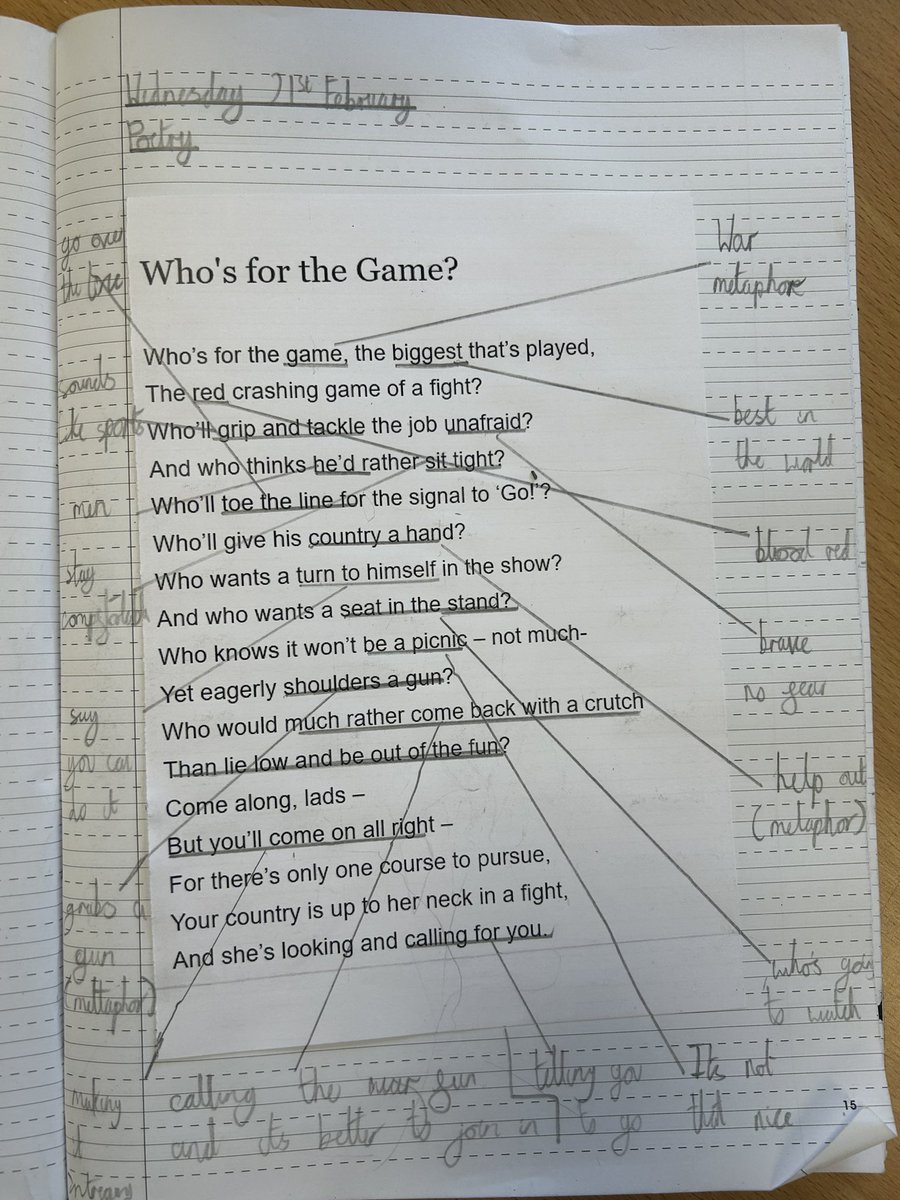 Wednesday 21st February
Poetry
go over
the
Who's for the Game?
War
metaphore
Who's for the game, the biggest that's played,
The red crashing game of a fight?
Who'll grip and tackle the job unafraid?
And who thinks he'd rather sit tight?
Who'll toe the line for the signal to 'Go!'?
Who'll give his country a hand?
Who wants a turn to himself in the show?
And who wants a seat in the stand?
Who knows it won't be a picnic – not much-
Yet eagerly shoulders a gun?
Who would much rather come back with a crutch
Than lie low and be out of the fun?
Come along, lads –
But you'll come on all right –
For there's only one course to pursue,
Your country is up to her neck in a fight,
And she's looking and calling for you.
sounds
like sports
men
stay
say
you can
do it
grabs a
gun
(mettaphor)
making
it
best in
the world
blood red
brave
no fear
help out
(metaphor)
who's going
to watch
calling the war fun
and its better to join in
telling you
to go
Its not
that nice
15